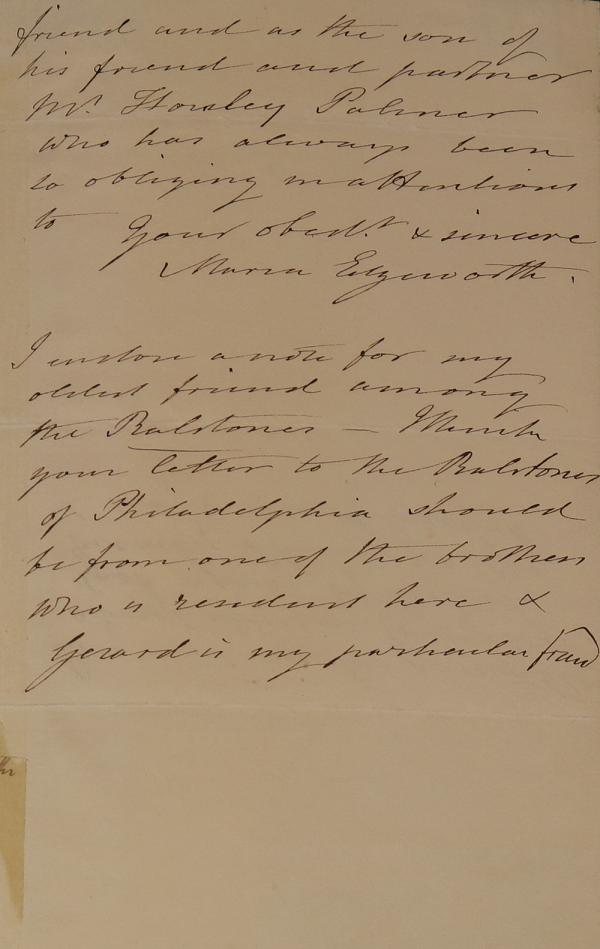 friend and as the son of
his friend and partner
Mr. Horsley Palmer
who has always been
so obliging in attentions
to Your obedt. & sincere
Maria Edgeworth.
I enclose a note for my
oldest friend among
the Ralstones — I think
your letter to the Ralstones
of Philadelphia should
be from one of the brothers
who is resident here &
Gerard is my particular friend